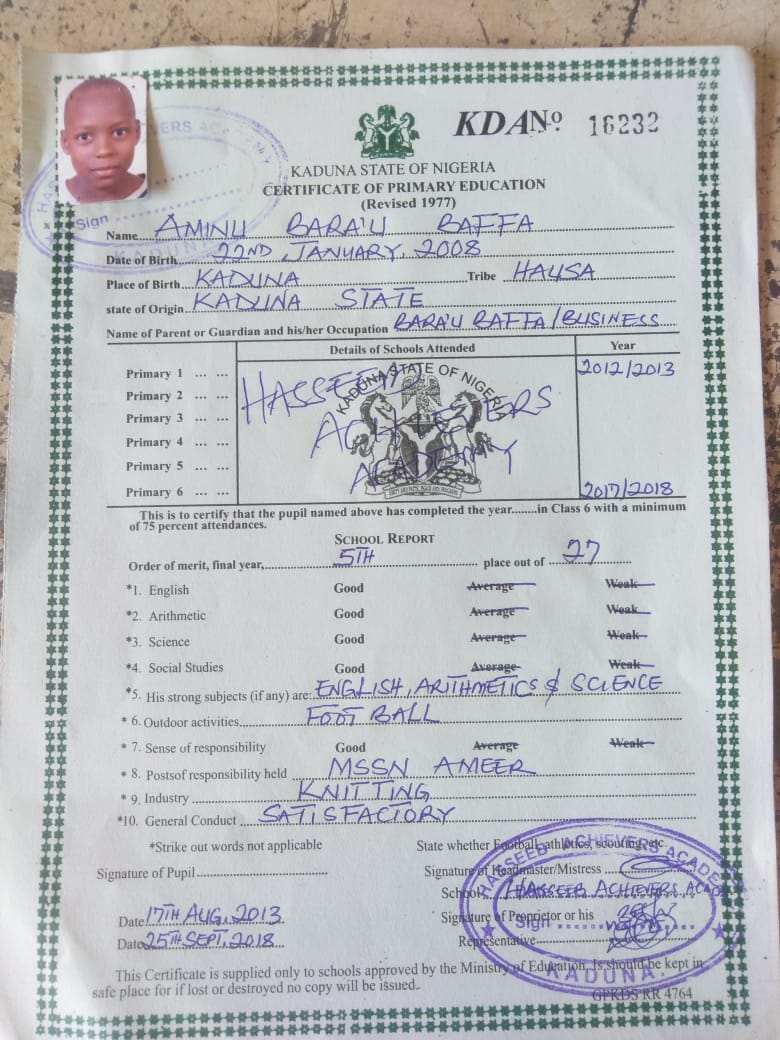 KDA No 16232
KADUNA STATE OF NIGERIA
CERTIFICATE OF PRIMARY EDUCATION
(Revised 1977)
Name AMINU BARA'U BAFFA
Date of Birth 22ND, JANUARY, 2008
Place of Birth KADUNA Tribe HAUSA
state of Origin KADUNA STATE
Name of Parent or Guardian and his/her Occupation BARA'U BAFFA/BUSINESS
Details of Schools Attended Year
Primary 1 ... ... 2012/2013
Primary 2 ... ...
Primary 3 ... ...
Primary 4 ... ...
Primary 5 ... ...
Primary 6 ... ... 2017/2018
HASSEEB
ACHIEVERS
ACADEMY
KADUNA STATE OF NIGERIA
This is to certify that the pupil named above has completed the year........in Class 6 with a minimum
of 75 percent attendances.
SCHOOL REPORT
Order of merit, final year, 5TH place out of 27
*1. English Good Average Weak
*2. Arithmetic Good Average Weak
*3. Science Good Average Weak
*4. Social Studies Good Average Weak
*5. His strong subjects (if any) are: ENGLISH, ARITHMETICS & SCIENCE
* 6. Outdoor activities FOOT BALL
* 7. Sense of responsibility Good Average Weak
* 8. Postsof responsibility held MSSN AMEER
* 9. Industry KNITTING
*10. General Conduct SATISFACTORY
*Strike out words not applicable State whether Football, athletics, scouting, etc.
Signature of Pupil
Signature of Headmaster/Mistress
School HASSEEB ACHIEVERS ACAD
Date 17TH AUG, 2013 Signature of Proprietor or his
Date 25TH SEPT, 2018 Representative
HASSEEB ACHIEVERS ACADEMY
Sign
KADUNA.
This Certificate is supplied only to schools approved by the Ministry of Education. Is should be kept in
safe place for if lost or destroyed no copy will be issued.
GPKDS RR 4764